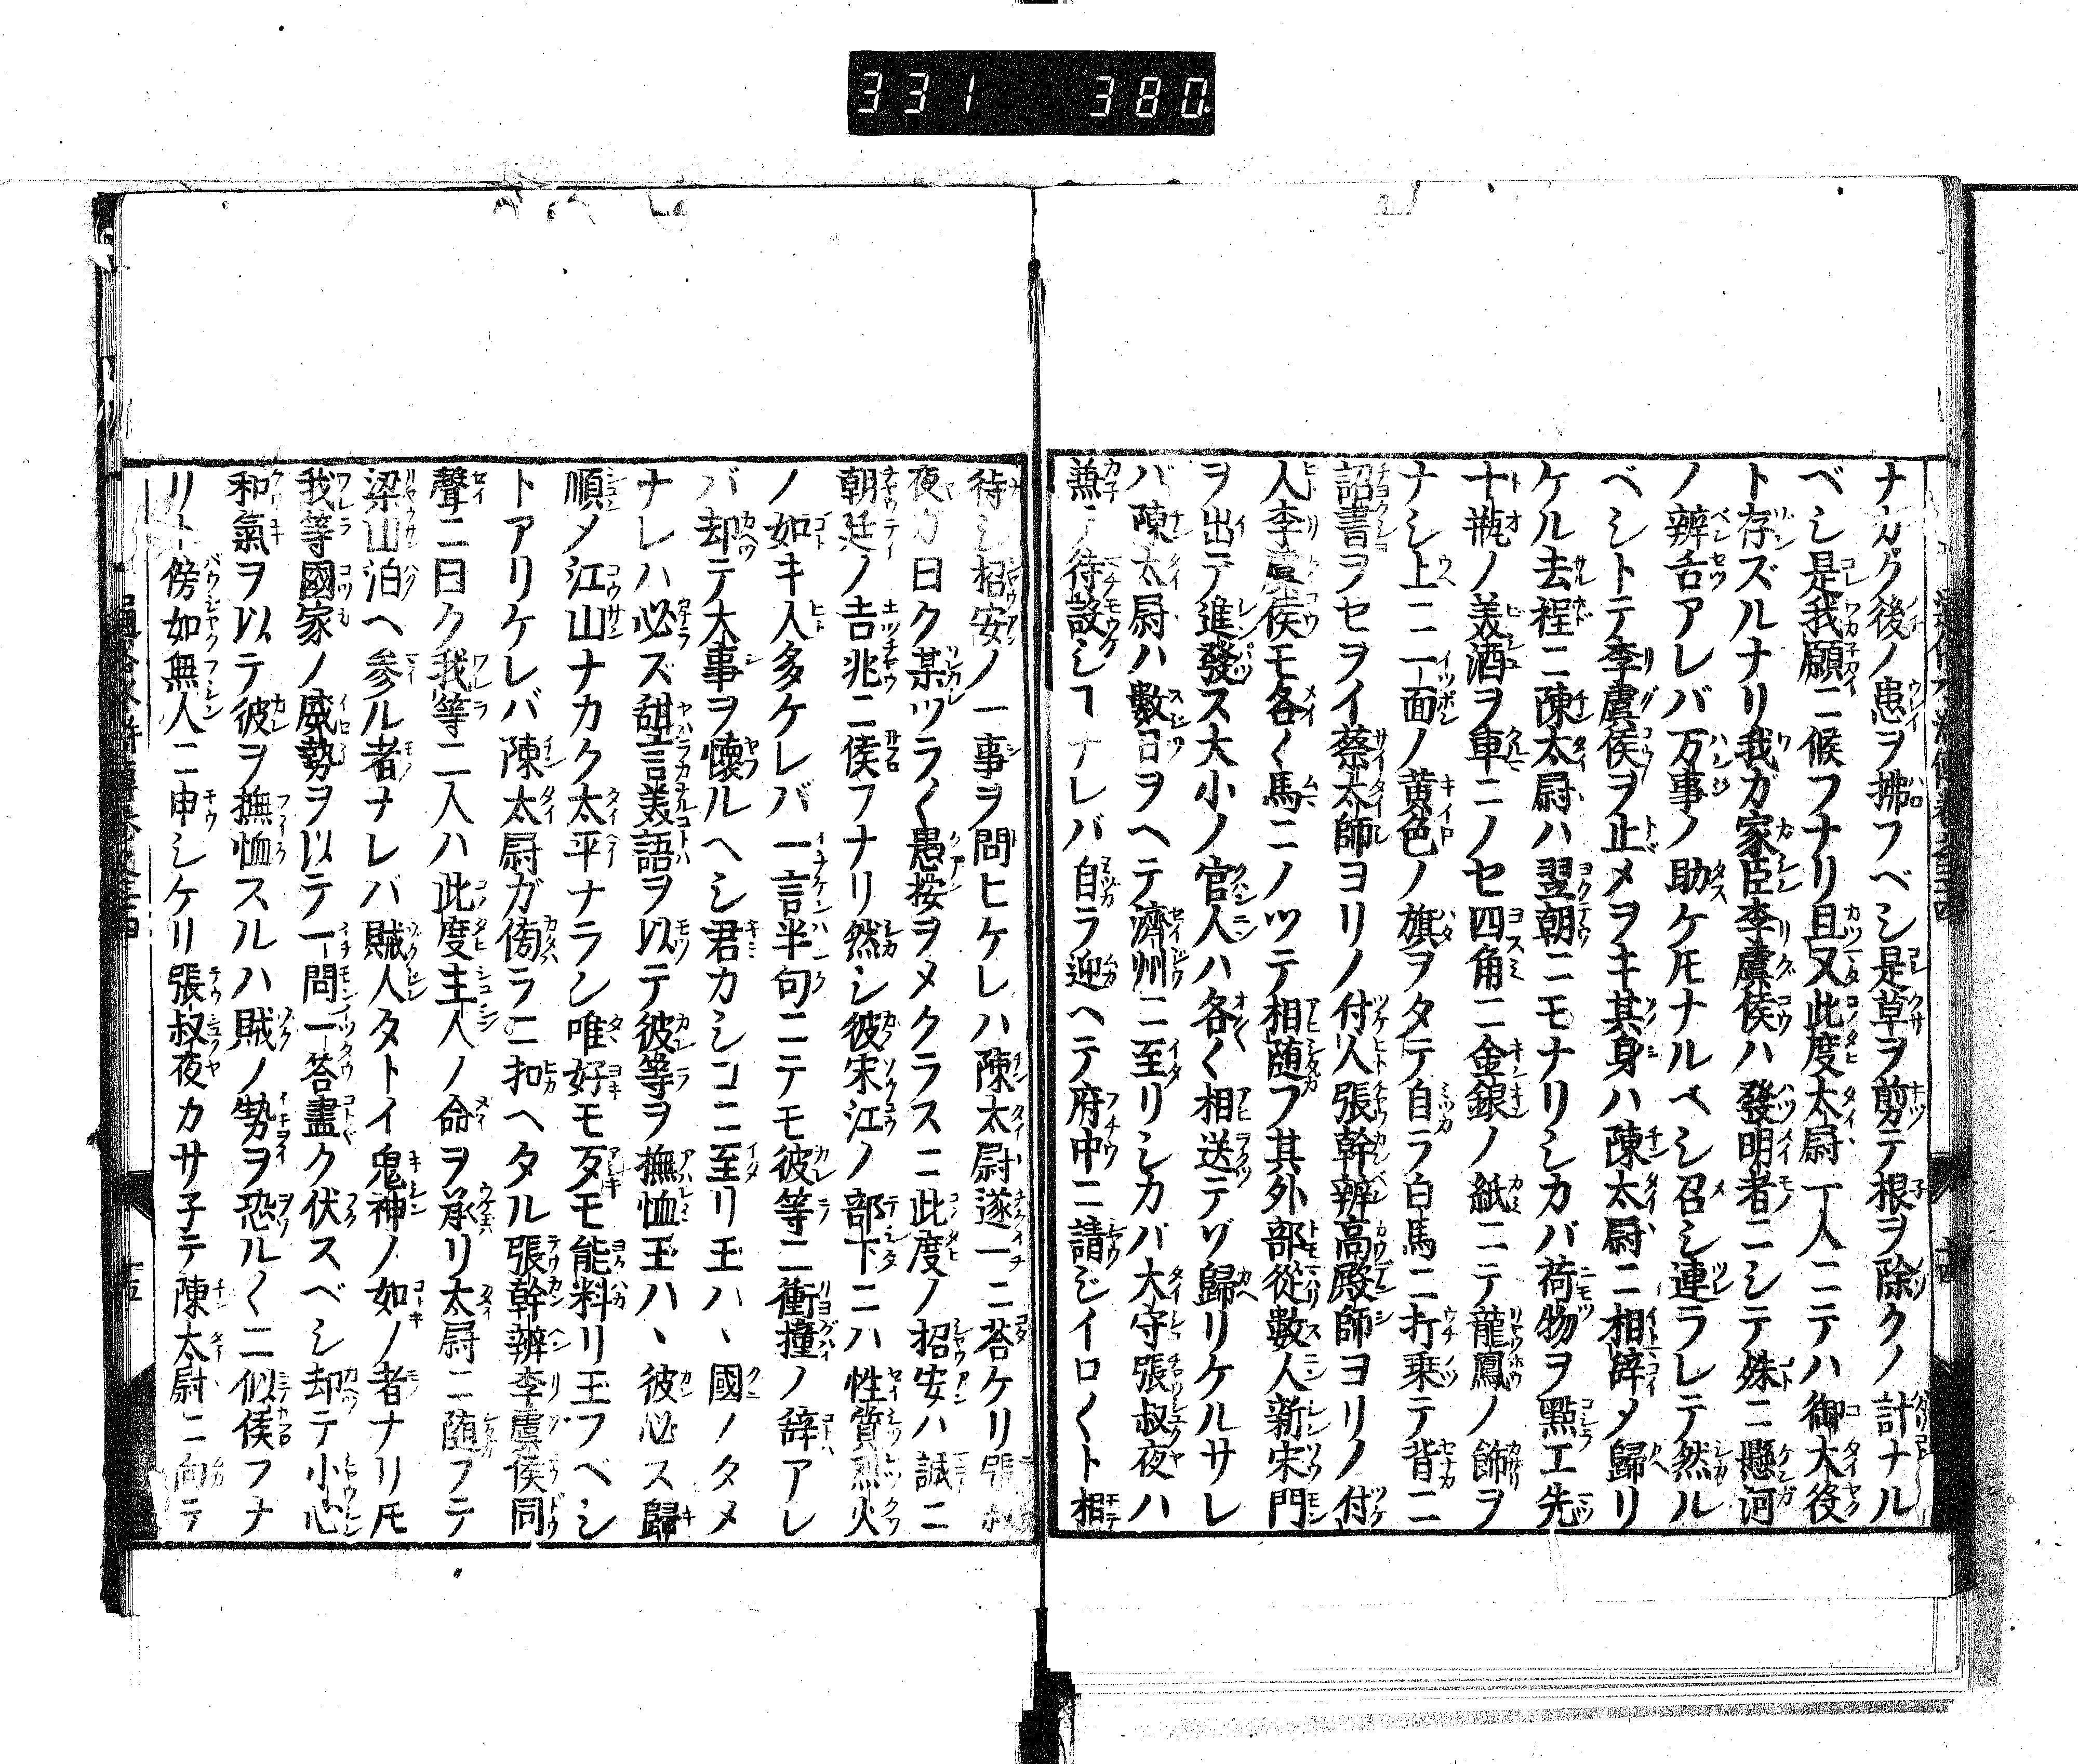 331 380
ナガク後ノ患ヲ拂フベシ是草ヲ剪テ根ヲ除クノ計ナル
ベシ是我願ニ候フナリ且又此度太尉一人ニテハ御大役
ト存ズルナリ我ガ家臣李虞侯ハ發明者ニシテ殊ニ懸河
ノ辨舌アレバ万事ノ助ケ𪜈ナルベシ召シ連ラレテ然ル
ベシトテ李虞侯ヲ止メヲキ其身ハ陳太尉ニ相辭メ歸リ
ケル去程ニ陳太尉ハ翌朝ニモナリシカバ荷物ヲ點エ先
十瓶ノ美酒ヲ車ニノセ四角ニ金銀ノ紙ニテ龍鳳ノ餝ヲ
ナシ上ニ一面ノ黄色ノ旗ヲタテ自ラ白馬ニ打乗テ背ニ
詔書ヲセヲイ蔡太師ヨリノ付人張幹辨高殿師ヨリノ付
人李虞侯モ各〱馬ニノツテ相随フ其外部從數人新宋門
ヲ出テ進發ス大小ノ官人ハ各〱相送テゾ歸リケルサレ
バ陳太尉ハ數日ヲヘテ濟州ニ至リシカバ大守張叔夜ハ
兼テ待設シヿナレバ自ラ迎ヘテ府中ニ請ジイロ〱ト相
待シ招安ノ一事ヲ問ヒケレハ陳太尉遂一ニ荅ケリ張叔
夜カ曰ク某ツラ〱愚按ヲメクラスニ此度ノ招安ハ誠ニ
朝廷ノ吉兆ニ侯フナリ然シ彼宋江ノ部下ニハ性質烈火
ノ如キ人多ケレバ一言半句ニテモ彼等ニ衝撞ノ辞アレ
バ却テ大事ヲ懐ルヘシ君カシコニ至リ玉ハヽ國ノタメ
ナレハ必ズ甜言美語ヲ以テ彼等ヲ撫恤玉ハヽ彼必ス歸
順メ江山ナカク太平ナラン唯好モ歹モ能料リ玉フベシ
トアリケレバ陳太尉ガ傍ラニ扣ヘタル張幹辨李虞侯同
聲ニ曰ク我等二人ハ此度主人ノ命ヲ承リ太尉ニ随フテ
梁山泊ヘ参ル者ナレバ賊人タトイ鬼神ノ如ノ者ナリ𪜈
我等國家ノ威勢ヲ以テ一問一答盡ク伏スベシ却テ小心
和氣ヲ以テ彼ヲ撫恤スルハ賊ノ勢ヲ恐ル〱ニ似侯フナ
リト傍如無人ニ申シケリ張叔夜カサ子テ陳太尉ニ向テ